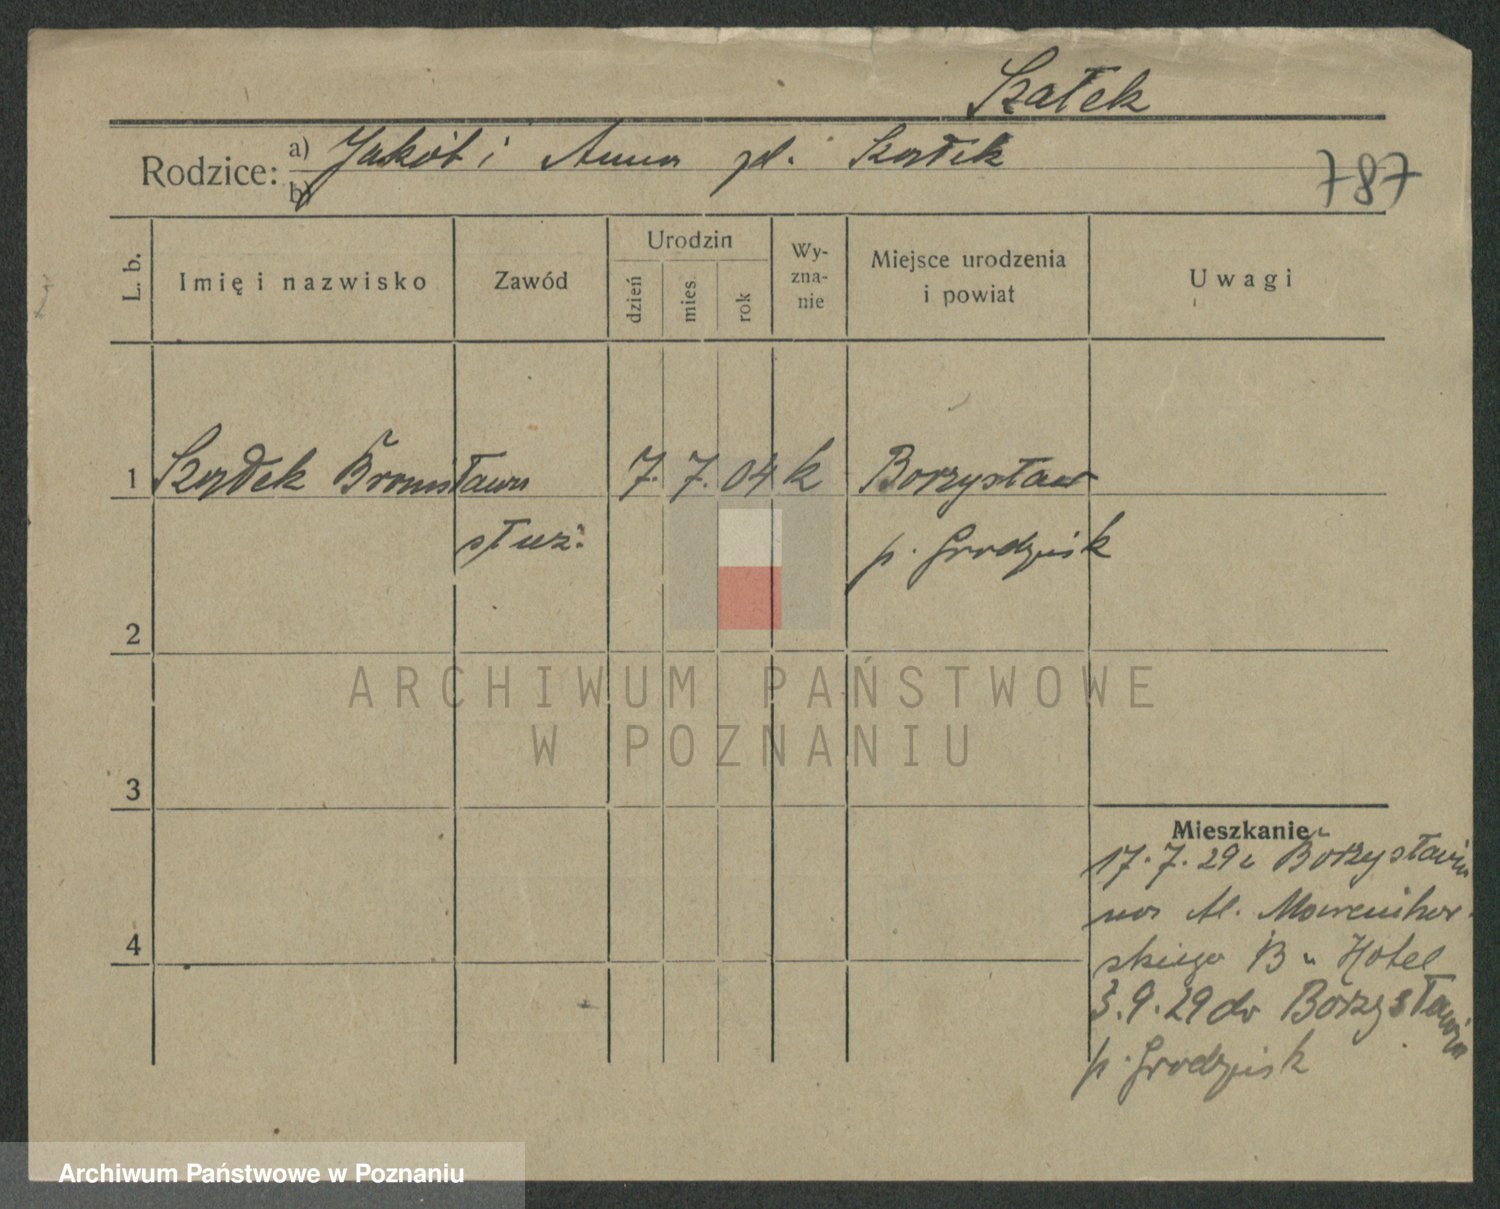 Szałek
Rodzice: a) Jakób i Anna zd. Szałek
b)
787
L. b.
Imię i nazwisko
Zawód
Urodzin
dzień
mies.
rok
Wy-
zna-
nie
Miejsce urodzenia
i powiat
Uwagi
1 Szałek Bronisława 7. 7. 04 k Borzysław
służ. p. Grodzisk
2
ARCHIWUM PAŃSTWOWE
W POZNANIU
3
Mieszkanie
17. 7. 29 z Borzysławia
na Al. Marcinkow-
skiego Hotel
4
3. 9. 29 do Borzysławia
p. Grodzisk
Archiwum Państwowe w Poznaniu